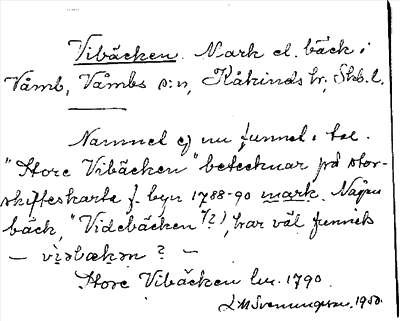 Vibäcken. Mark el. bäck i
Våmb, Våmbs s:n, Kåkinds hr, Skb. l.
Namnet ej nu funnet i tal.
"Store Vibäcken" betecknar på stor-
skifteskarta f. byn 1788-90 mark. Någon
bäck, "Videbäcken"(?) har väl funnits
– vidbækən ? –
Store Vibäcken lm. 1790.
1950.